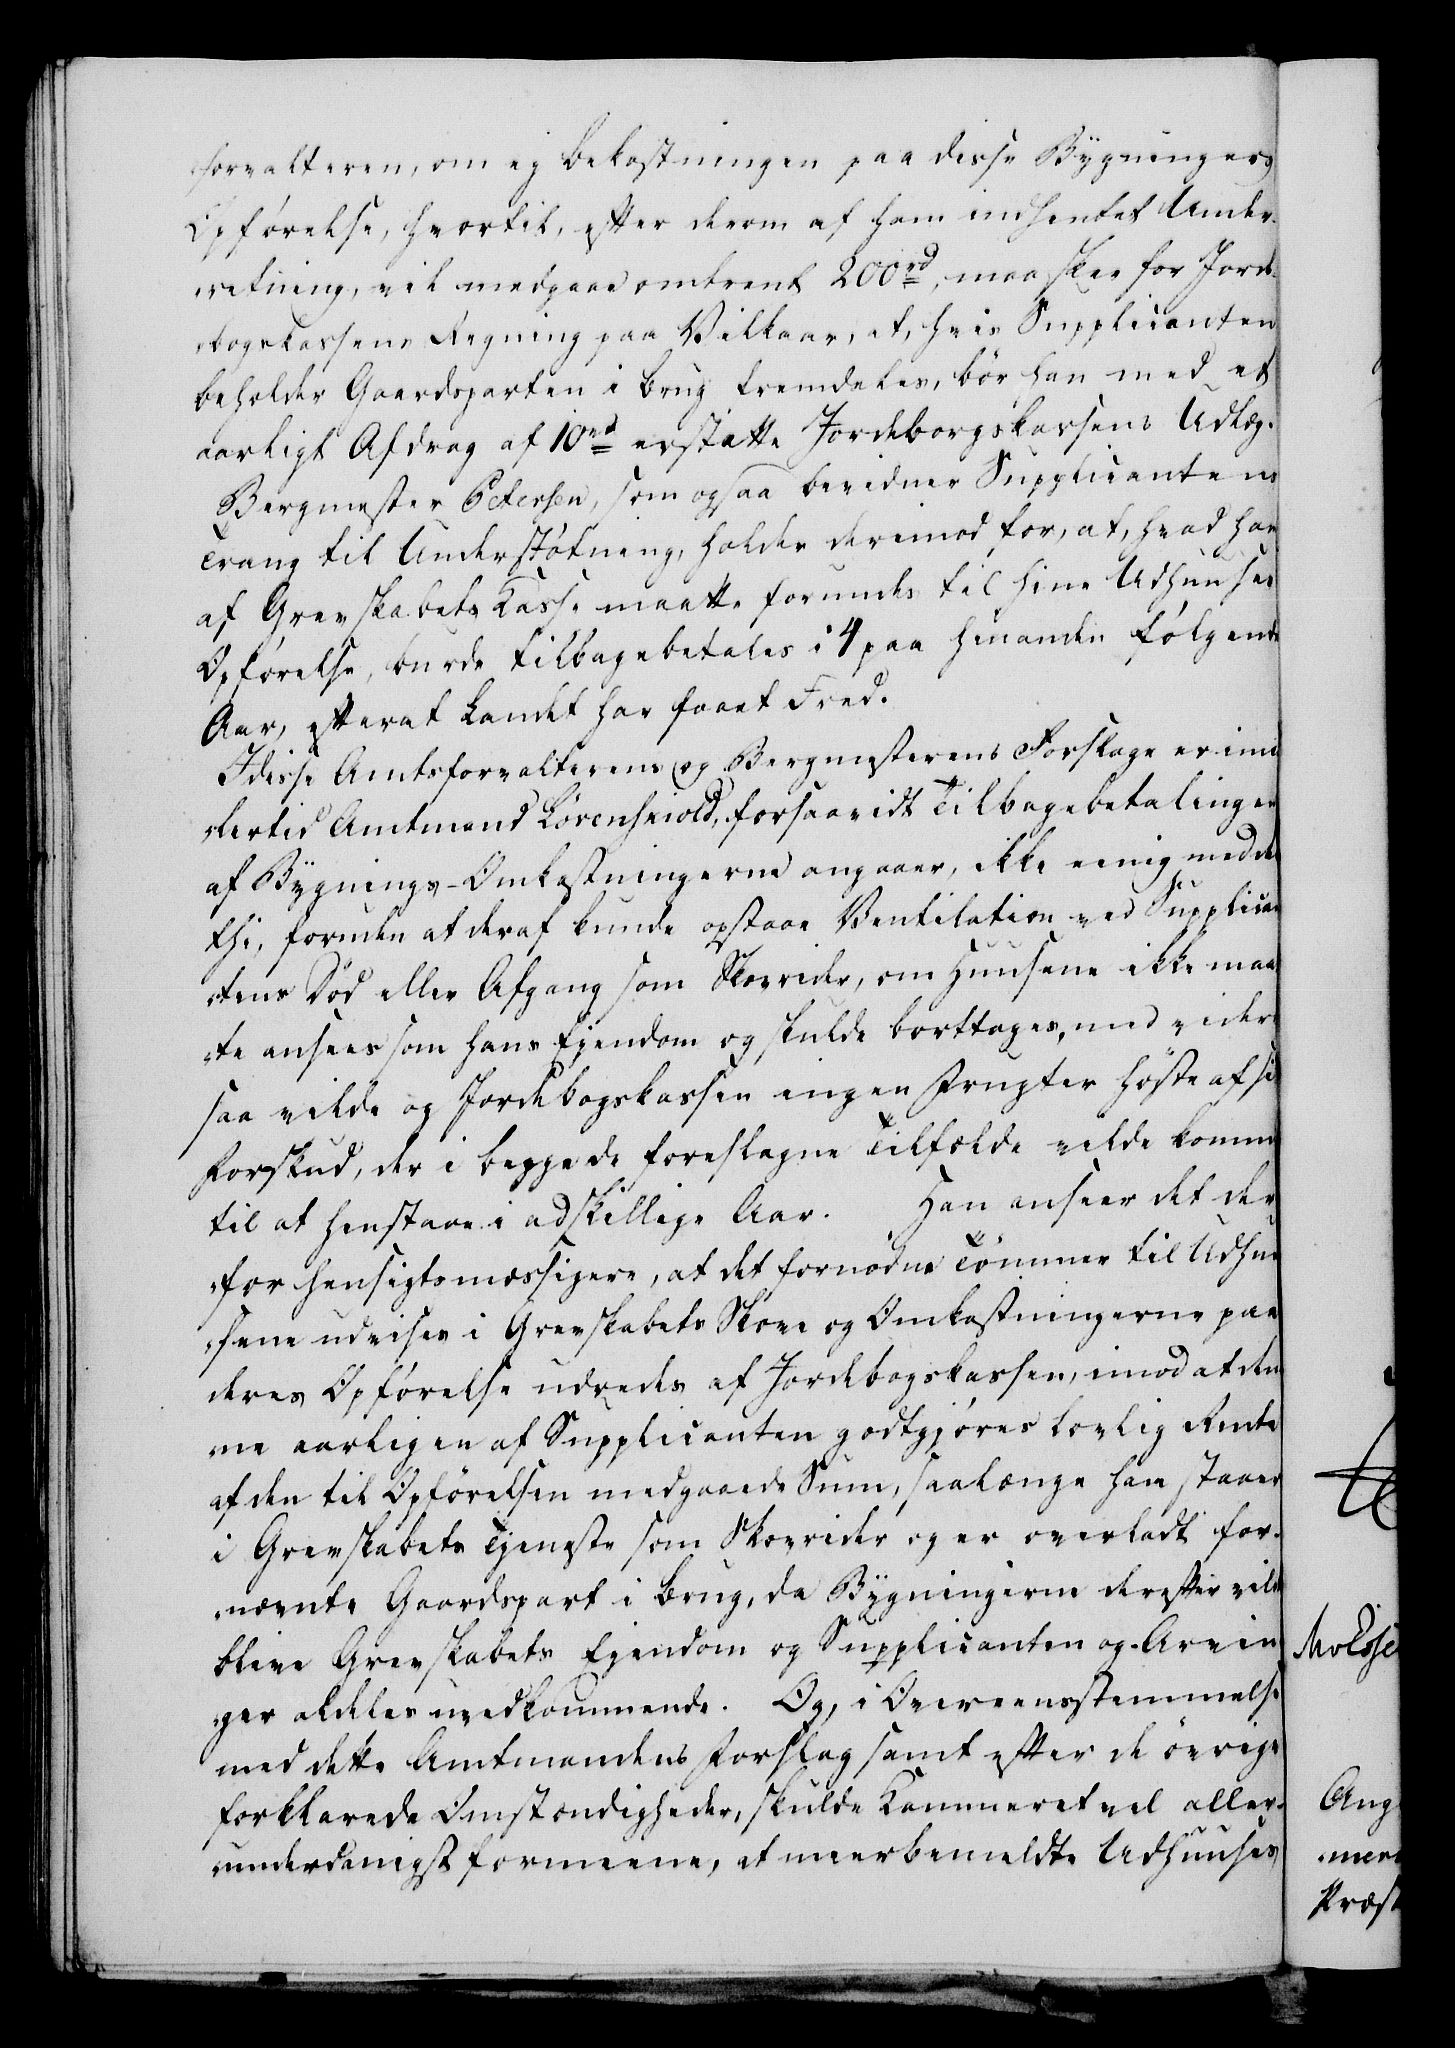 forvalteren, om ej Bekostningen paa disse Bygningers
Opførelse, hvortil, efter derom af ham indhentet Under-
retning, vil medgaae omtrent 200 rd, maa skee for Jorde-
bogskassens Regning paa Vilkaar, at, hvis Supplicanten
beholder Gaardsparten i Brug fremdeles, bør han med et
aarligt Afdrag af 10 rd erstatte Jordebogskassens Udlæg.
Bergmester Petersen, som ogsaa bevidner Supplicantens
Trang til Understøtning, holder derimod for, at, hvad ham
af Grevskabets Kasse maatte forundes til hine Udhuuses
Opførelse, burde tilbagebetales i 4 paa hinanden følgende
Aar, efterat Landet har faaet Fred.
I disse Amtsforvalterens og Bergmesterens Forslage er imi
dlertid Amtmand Løvenskiold, forsaavidt Tilbagebetalingen
af Bygnings-Omkostningerne angaaer, ikke eenig med dem
thi, foruden at deraf kunde opstaae Ventilation ved Supplican
tens Død eller Afgang som Skovrider, om Huusene ikke maat
te ansees som hans Ejendom og skulde borttages, med videre
saa vilde og Jordebogskassen ingen Frugter høste af sit
Forskud, der i begge de foreslagne Tilfælde vilde komme
til at henstaae i adskillige Aar. Han anseer det der
for hensigtsmæssigere, at det fornødne Tømmer til Udhuu
sene udvises i Grevskabets Skove og Omkostningerne paa
deres Opførelse udredes af Jordebogskassen, imod at den
ne aarligen af Supplicanten godtgjøres lovlig Rente
af den til Opførelsen medgaaede Sum, saalænge han staaer
i Grevskabets Tjeneste som Skovrider og er overladt for-
nævnte Gaardspart i Brug, da Bygningerne derefter vilde
blive Grevskabets Ejendom og Supplicanten og Arvin
ger aldeles uvedkommende. Og, i Overeensstemmelse
med dette Amtmandens Forslag samt efter de øvrige
forklarede Omstændigheder, skulde Kammeret vel aller-
underdanigst formeene, at meerbemeldte Udhuuses
Ang
Præst